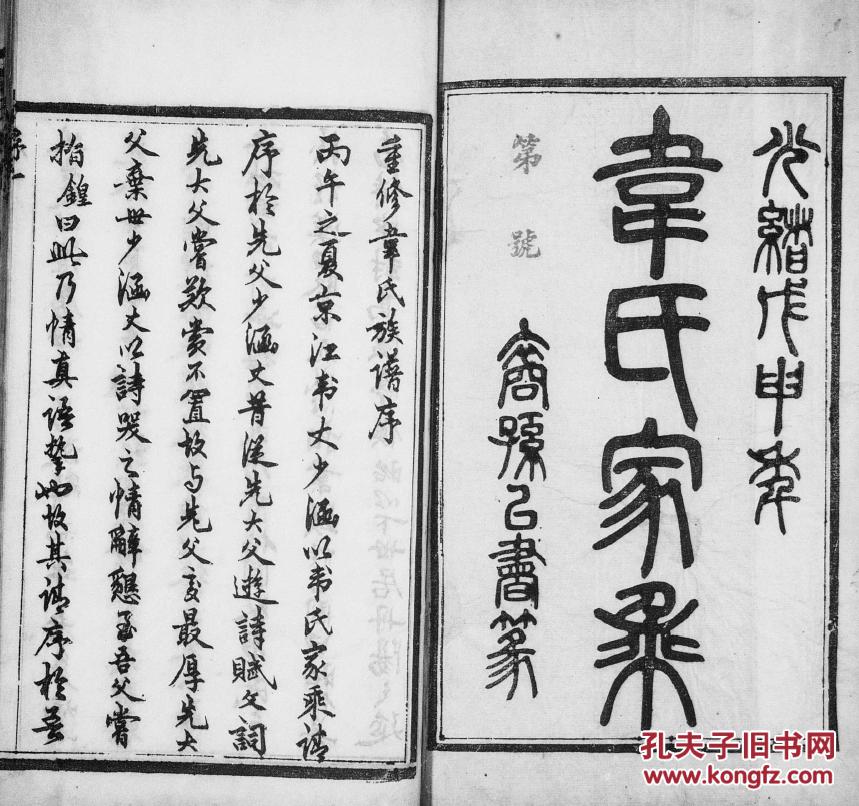 光緒戊申年
韋氏家乘
第 號
裔孫己書篆
重修韋氏族譜序
丙午之夏京江韦丈少涵以韦氏家乘請
序於先父少涵丈昔從先大父遊詩賦文詞
先大父嘗歎賞不置故与先父交最厚先大
父棄世少涵丈以詩哭之情辭懇至吾父嘗
指鍠曰此乃情真語摯也故其請序於吾
序一
孔夫子旧书网
www.kongfz.com